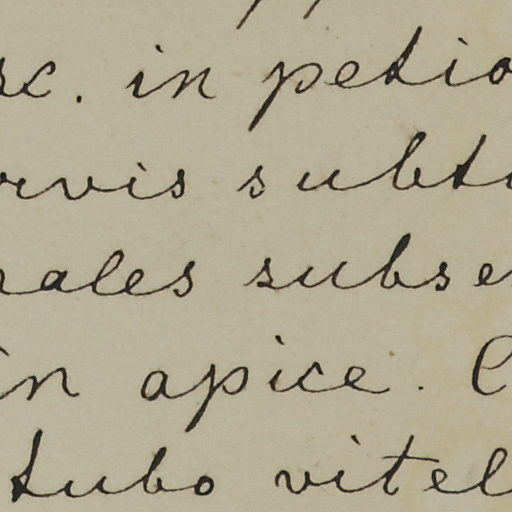 sc. in petio
rvis subt
rales subse
in apice. C
tubo vitel